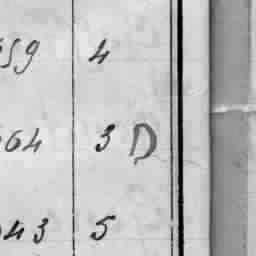 59 4
64 3 D
43 5